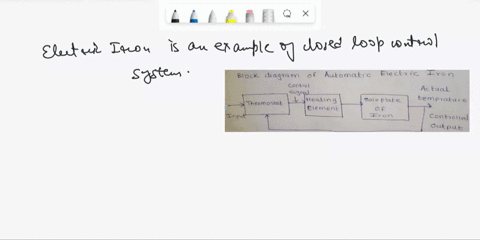 Electric Iron is an example of closed loop control
system.
Block diagram of Automatic Electric Iron
Control
signal
Actual
temperature
Thermostat
Heating
Element
Base plate
of
Iron
Input
Controlled
Output